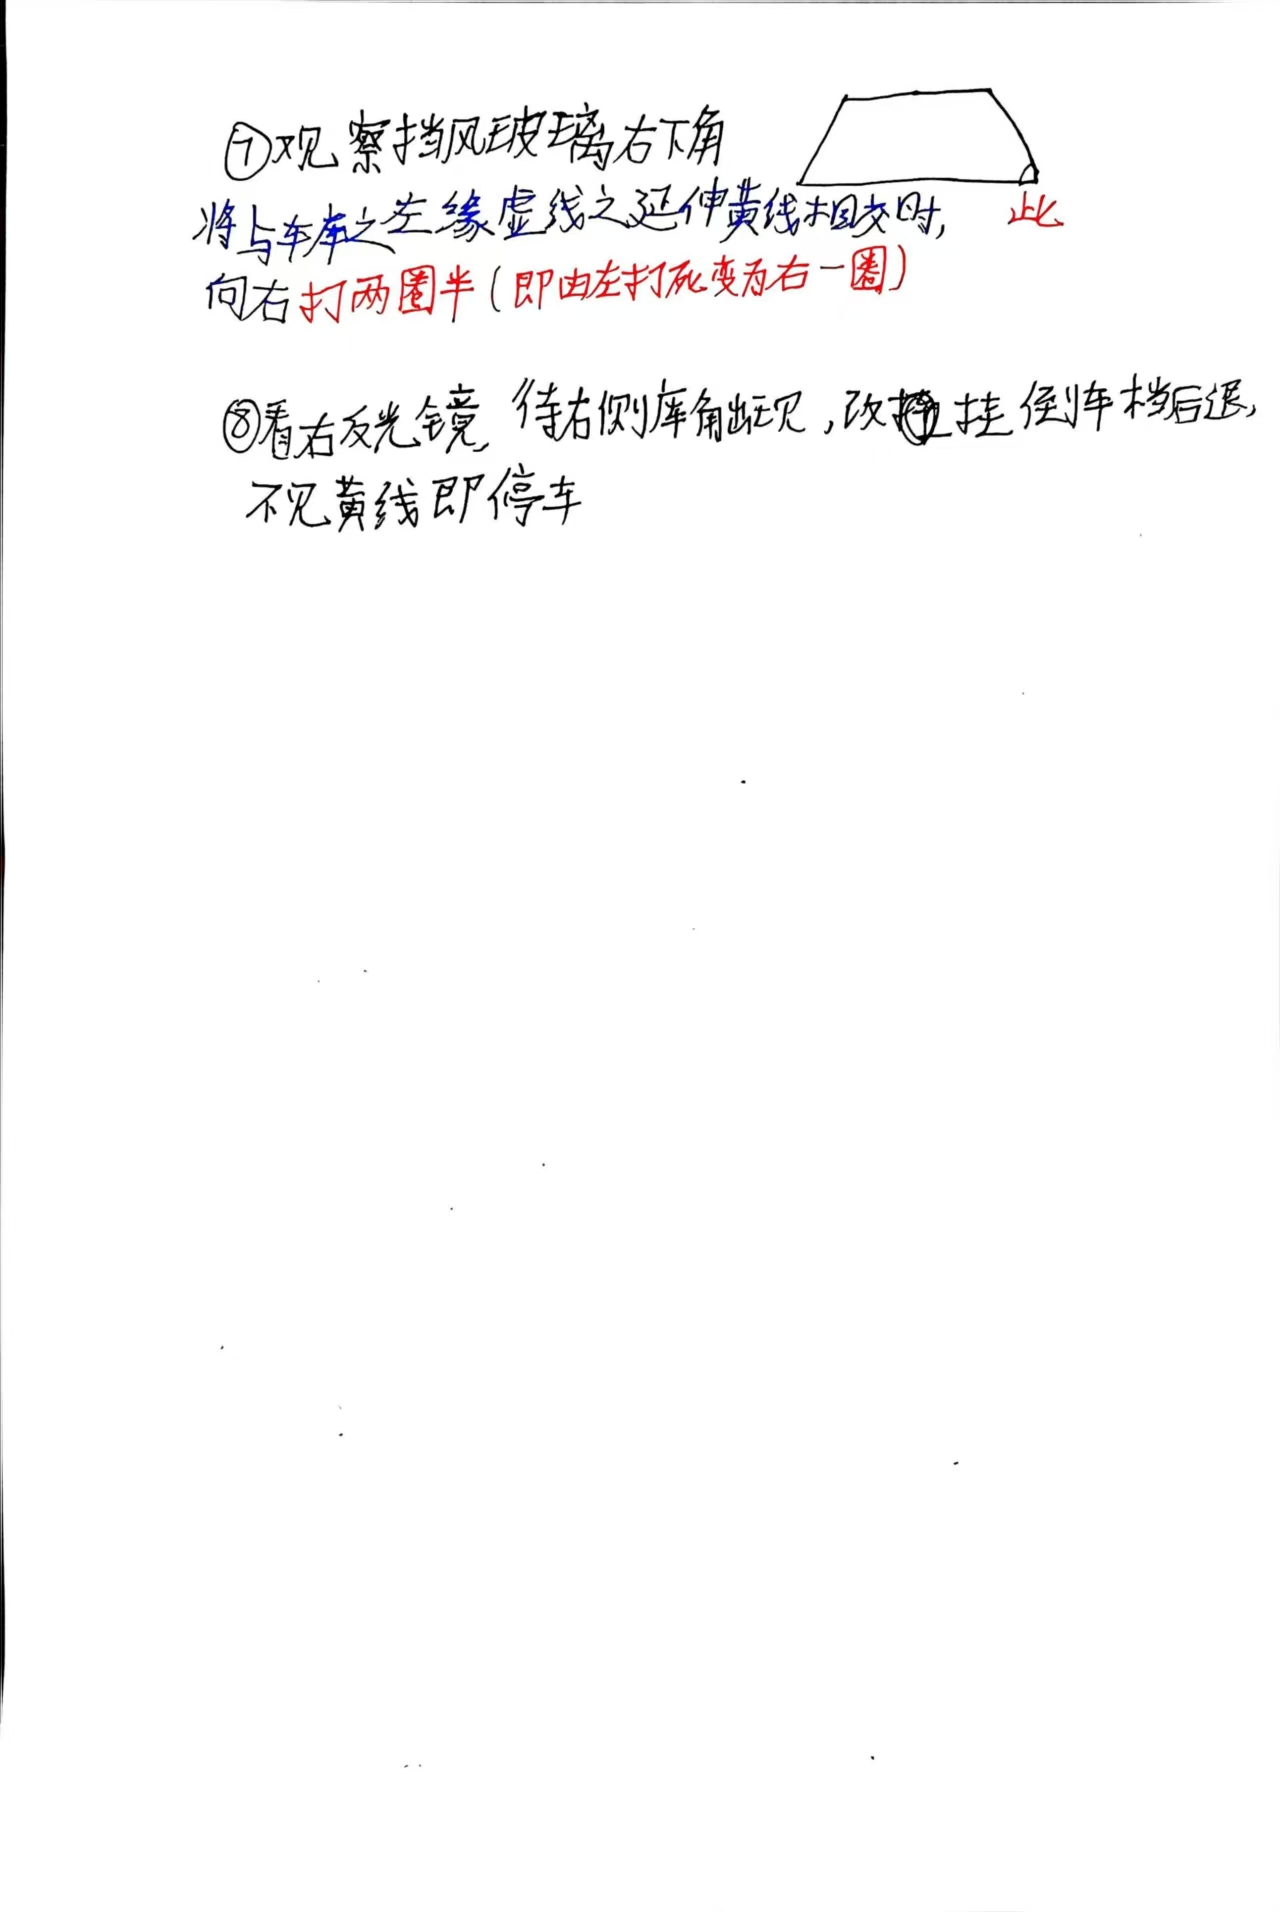 ⑦观察挡风玻璃右下角
将与车库之左缘虚线之延伸黄线相交时,
此
向右打两圈半(即由左打死变为右一圈)
⑧看右反光镜,待右侧库角出现,改挂倒车档后退,
不见黄线即停车